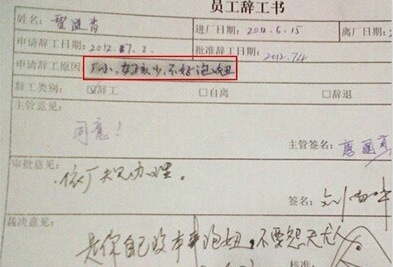 员工辞工书
姓名: 进厂日期: 2012.6.15 离厂日
申请辞工日期: 2012.7.2. 批准辞工日期: 2012.7.4
申请辞工原因: 厂小,女孩少,不好泡妞
辞工类别: ☑辞工 □自离 □辞退
主管意见:
同意!
主管签名:
审批意见:
依厂规办理。
签名:
裁决意见:
是你自己没本事泡妞,不要怨天尤人
核准: